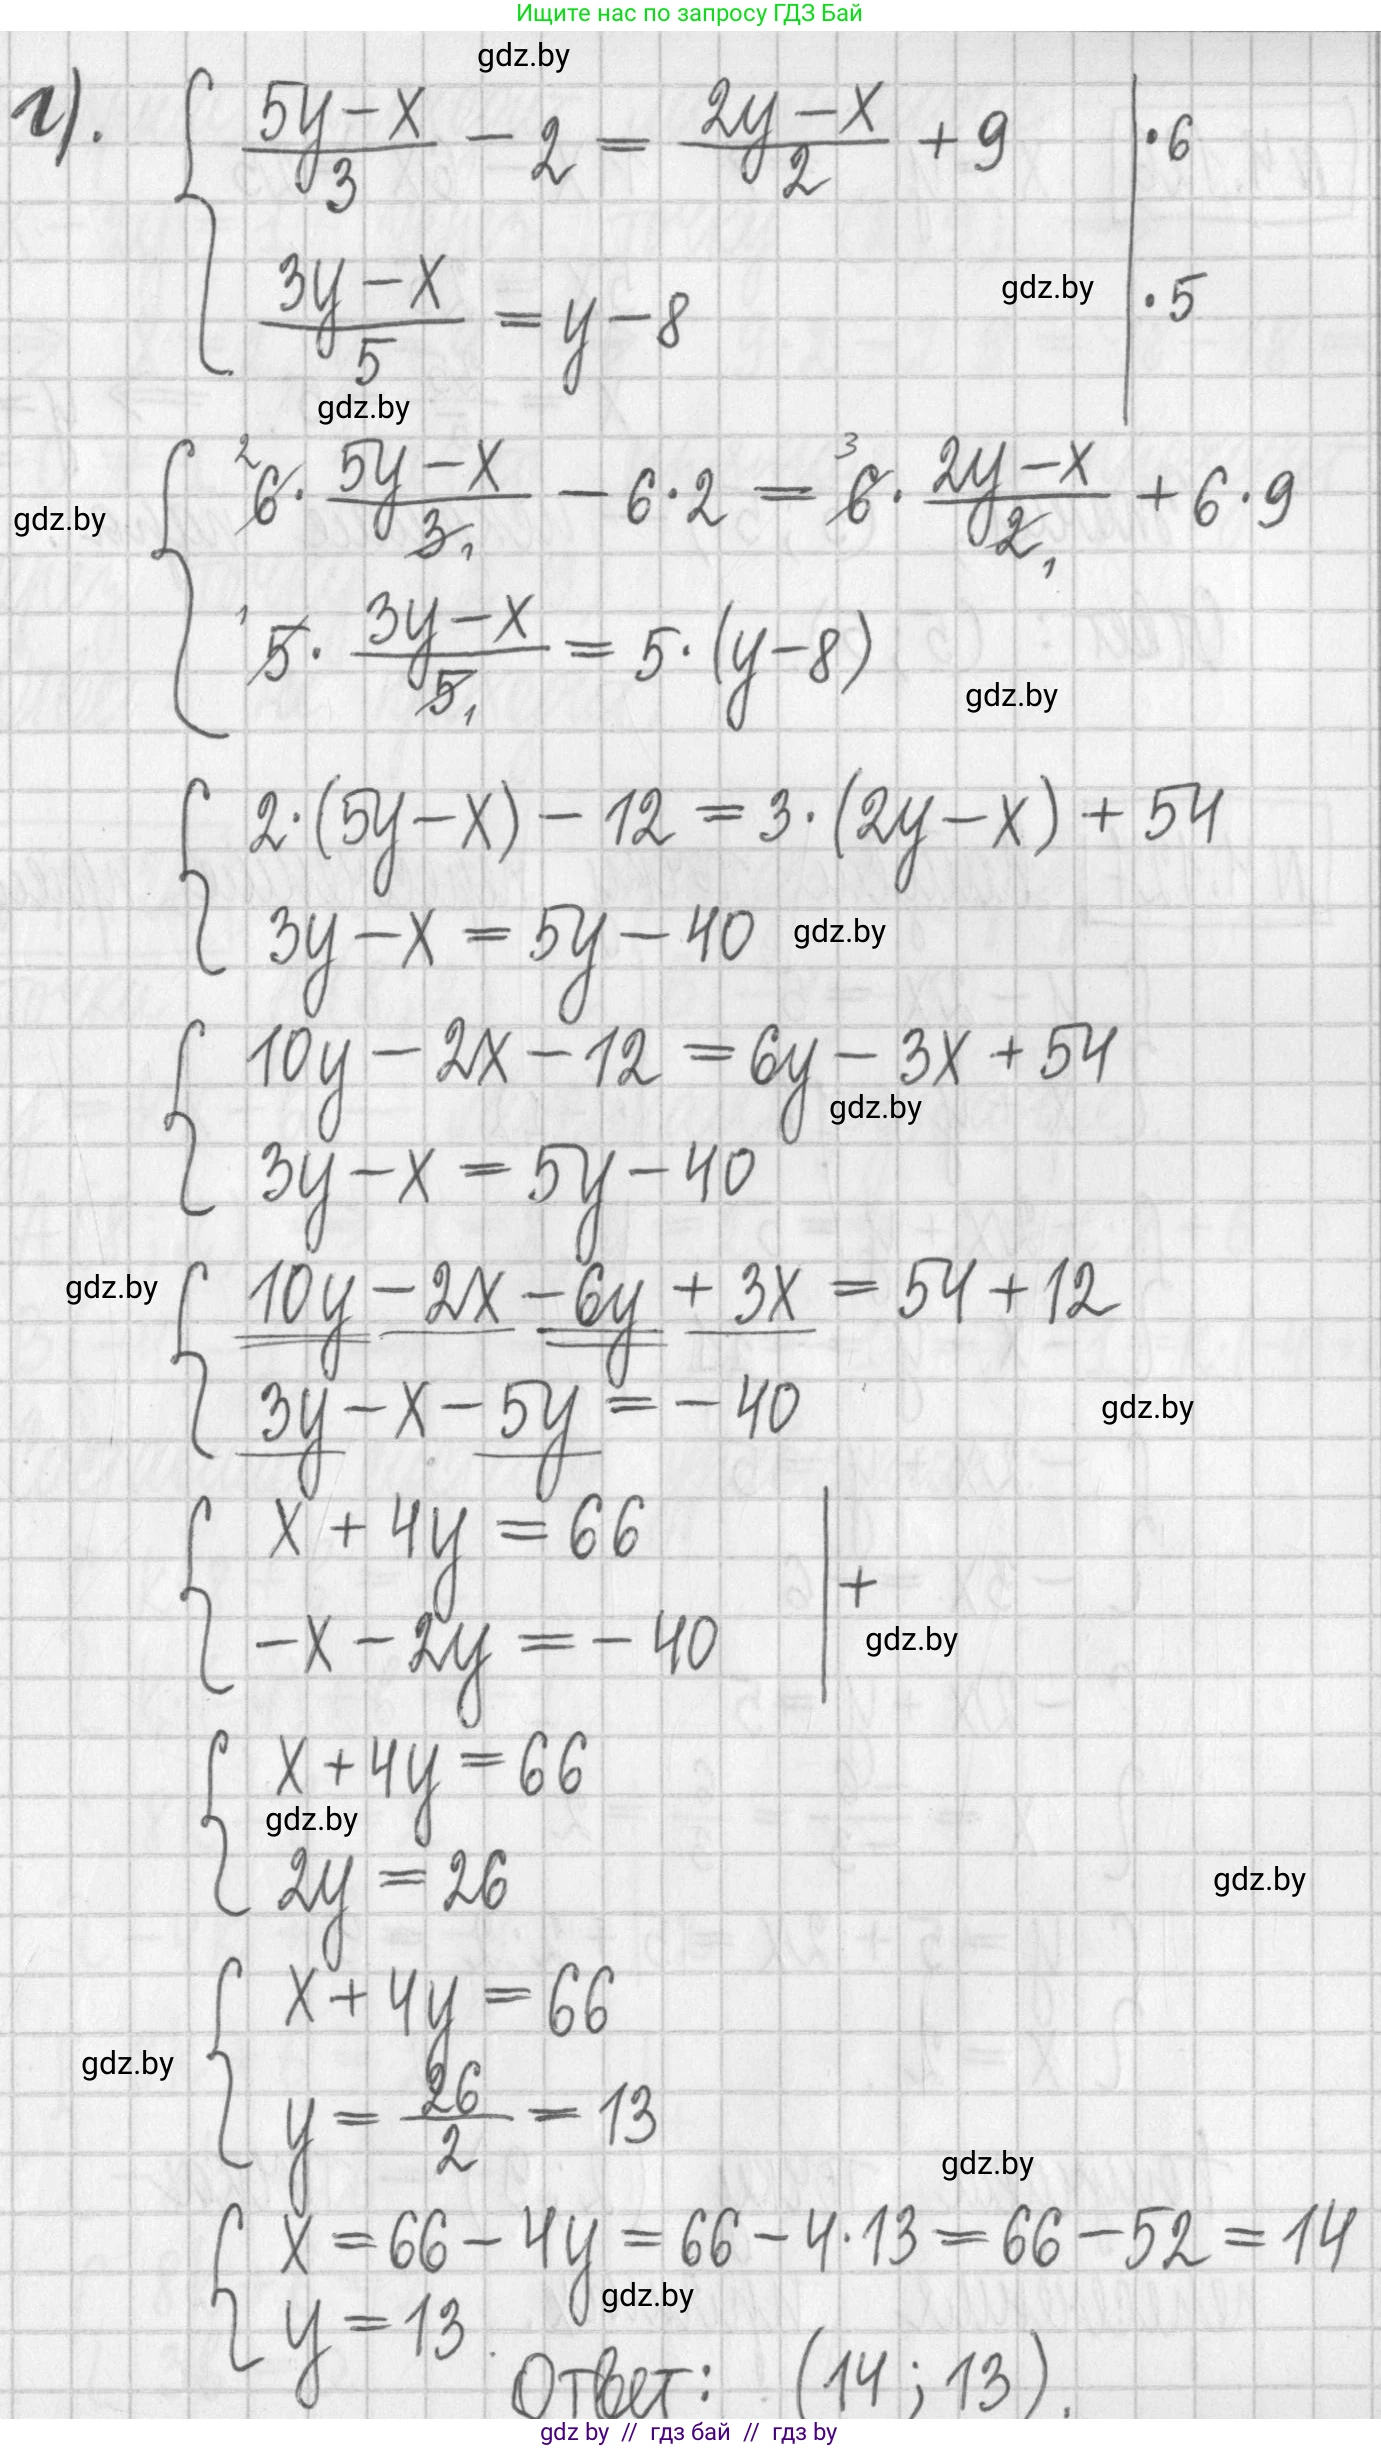 Ищите нас по запросу ГДЗ Бай
gdz.by
г). { (5y-x)/3 - 2 = (2y-x)/2 + 9 | ·6
(3y-x)/5 = y-8 | ·5
gdz.by
gdz.by
{ ²6· (5y-x)/3₁ - 6·2 = ³6· (2y-x)/2₁ + 6·9
gdz.by
¹5· (3y-x)/5₁ = 5·(y-8)
gdz.by
{ 2·(5y-x) - 12 = 3·(2y-x) + 54
3y-x = 5y-40
gdz.by
{ 10y - 2x - 12 = 6y - 3x + 54
gdz.by
3y-x = 5y-40
gdz.by
{ 10y - 2x - 6y + 3x = 54 + 12
3y - x - 5y = -40
gdz.by
{ x + 4y = 66 | +
-x - 2y = -40
gdz.by
{ x + 4y = 66
gdz.by
2y = 26
gdz.by
{ x + 4y = 66
gdz.by
y = 26/2 = 13
gdz.by
{ x = 66 - 4y = 66 - 4·13 = 66 - 52 = 14
gdz.by
y = 13.
Ответ: (14; 13).
gdz by // гдз бай // гдз by